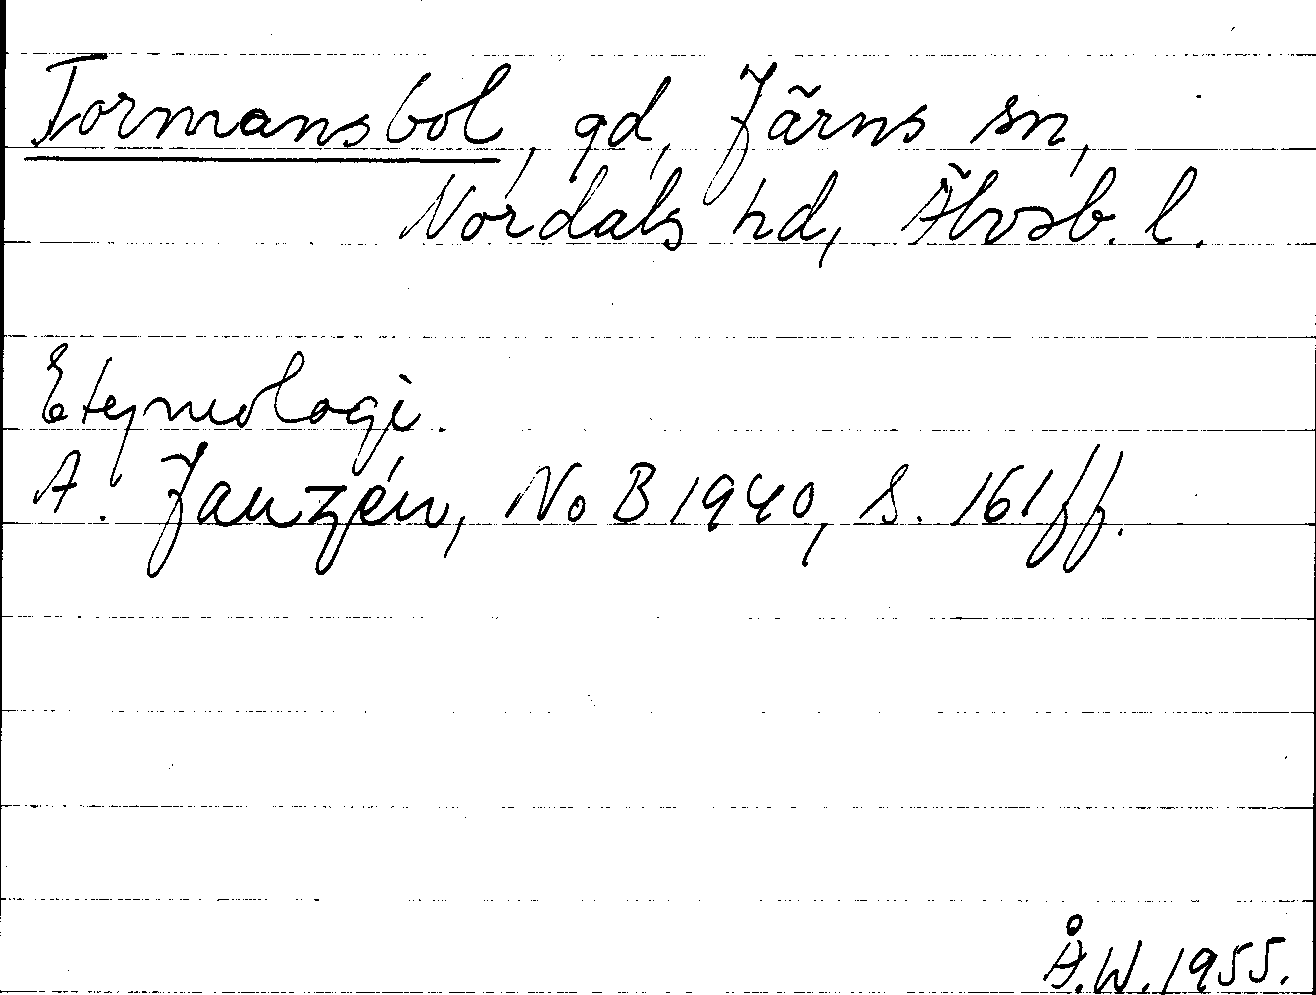 Tormansbol, gd, Järns sn,
Nordals hd, Älvsb. l.
Etymologi.
A. Janzén, NoB 1940, S. 161 ff.
Å.W. 1955.